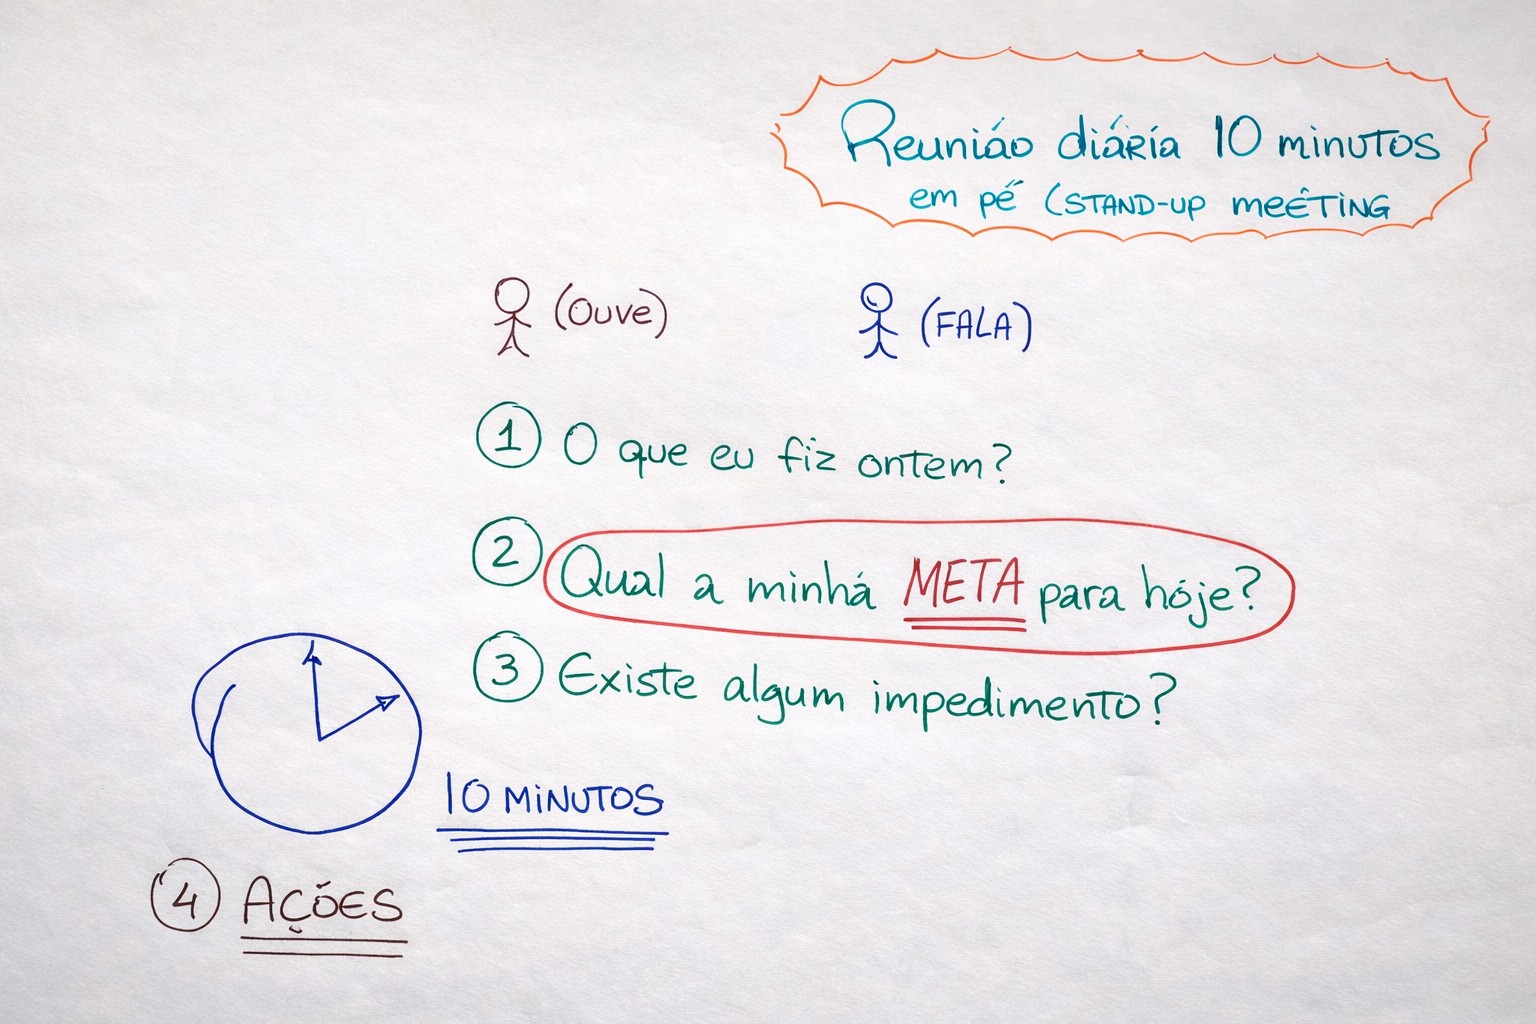 Reunião diária 10 minutos
em pé (STAND-UP MEÊTING
(OUVE)
(FALA)
1 O que eu fiz ontem?
2 Qual a minhá META para hóje?
3 Existe algum impedimento?
10 MINUTOS
4 AÇÕES